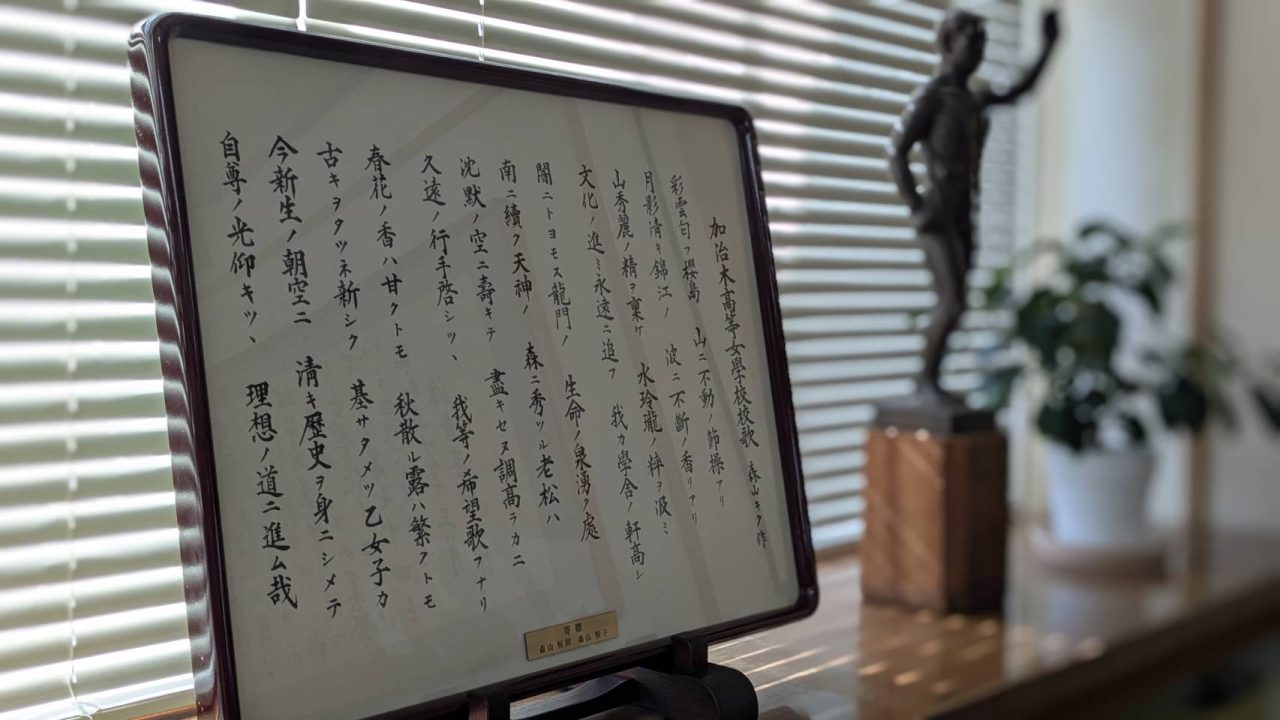 加治木高等女學校校歌 森山キク作
彩雲匂フ櫻島 山ニ不動ノ節操アリ
月影清キ錦江ノ 波ニ不斷ノ香リアリ
山秀麗ノ精ヲ稟ケ 水玲瓏ノ粹ヲ汲ミ
文化ノ進ミ永遠ニ追フ 我カ學舎ノ軒高シ
闇ニトヨモス龍門ノ 生命ノ泉湧ク處
南ニ續ク天神ノ 森ニ秀ツル老松ハ
沈默ノ空ニ壽キテ 盡キセヌ調高ラカニ
久遠ノ行手啓シツヽ 我等ノ希望歌フナリ
春花ノ香ハ甘クトモ 秋散ル露ハ繁クトモ
古キヲタツネ新シク 基サタメツ乙女子カ
今新生ノ朝空ニ 清キ歷史ヲ身ニシメテ
自尊ノ光仰キツヽ 理想ノ道ニ進ム哉
寄贈
森山 森山 悦子